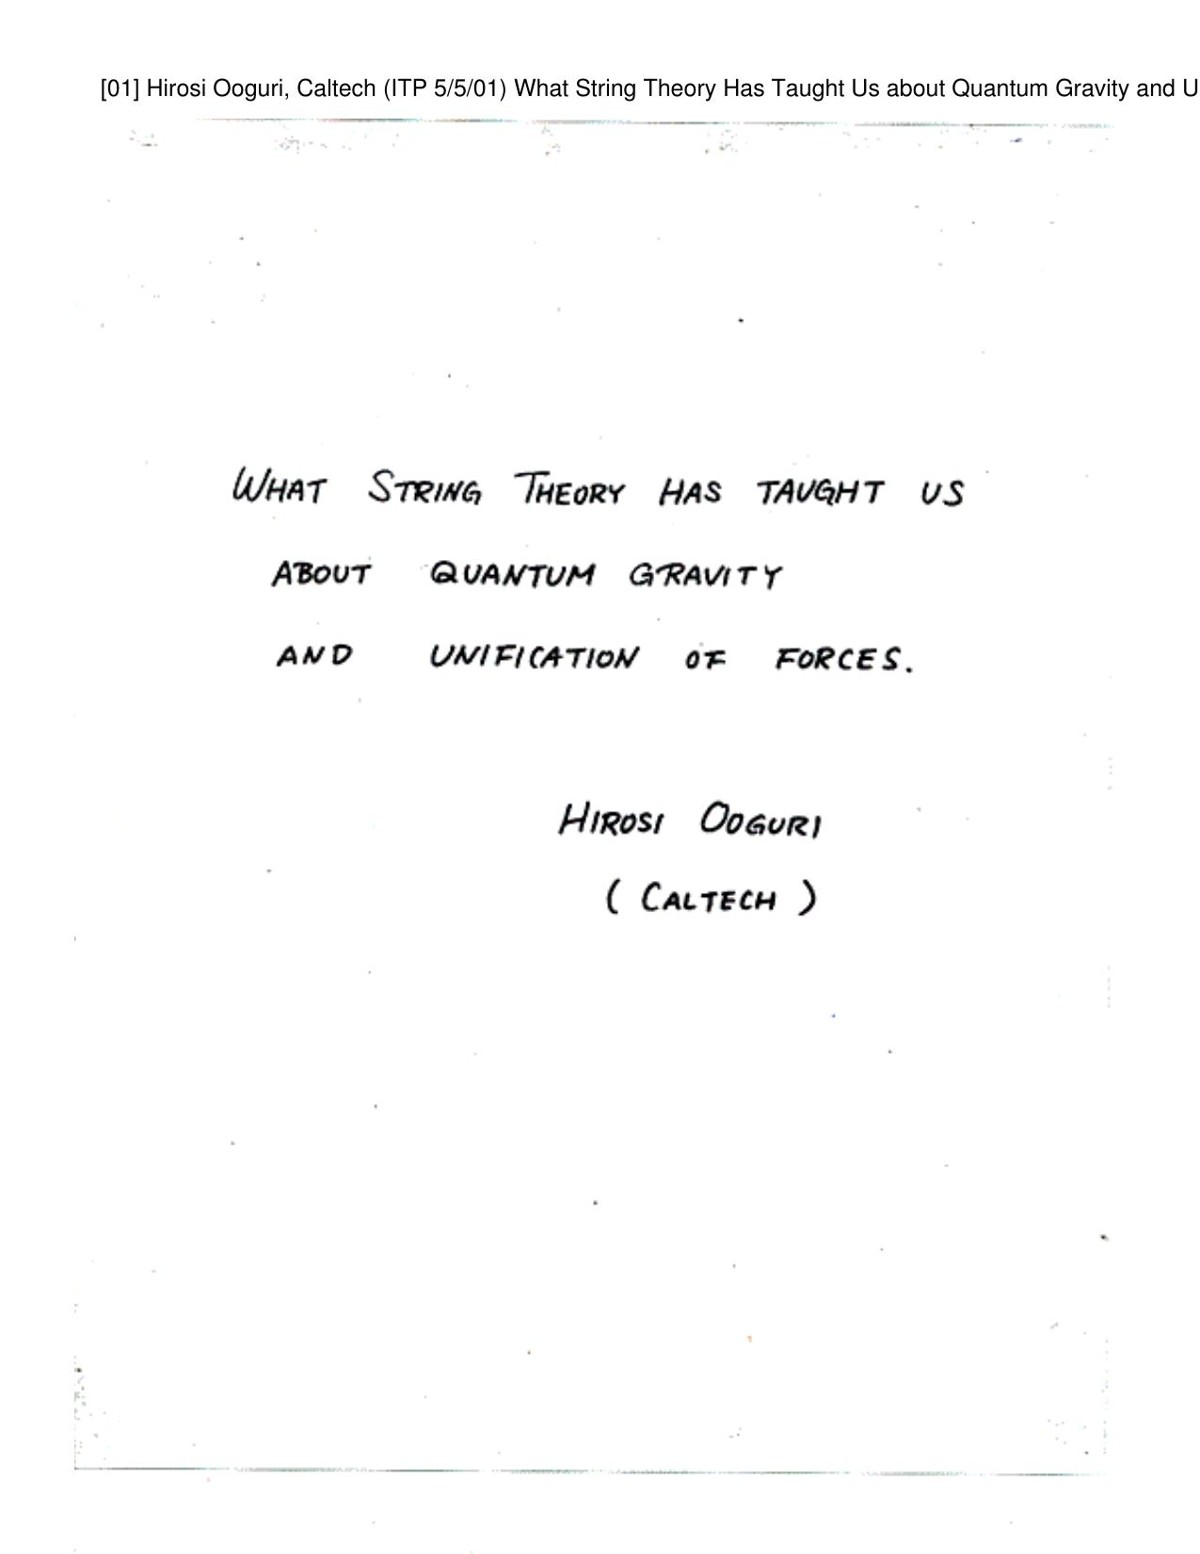 [01] Hirosi Ooguri, Caltech (ITP 5/5/01) What String Theory Has Taught Us about Quantum Gravity and U
WHAT STRING THEORY HAS TAUGHT US
ABOUT QUANTUM GRAVITY
AND UNIFICATION OF FORCES.
HIROSI OOGURI
( CALTECH )